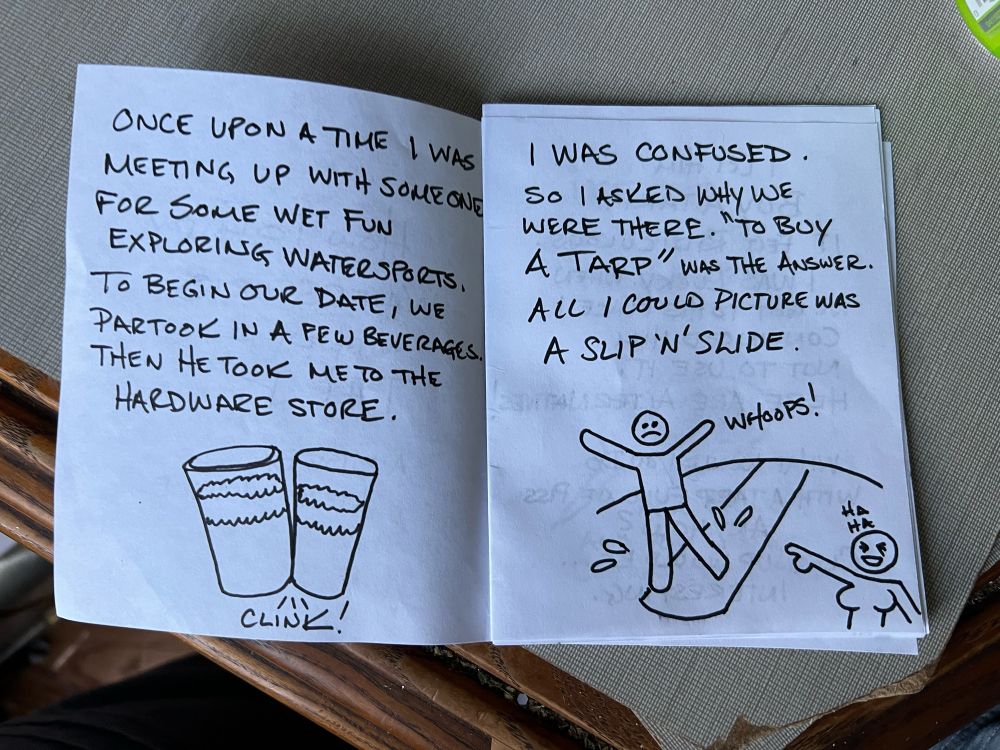 ONCE UPON A TIME I WAS
MEETING UP WITH SOMEONE
FOR SOME WET FUN
EXPLORING WATERSPORTS.
TO BEGIN OUR DATE, WE
PARTOOK IN A FEW BEVERAGES.
THEN HE TOOK ME TO THE
HARDWARE STORE.
CLINK!
I WAS CONFUSED.
SO I ASKED WHY WE
WERE THERE. "TO BUY
A TARP" WAS THE ANSWER.
ALL I COULD PICTURE WAS
A SLIP 'N' SLIDE.
WHOOPS!
HA
HA